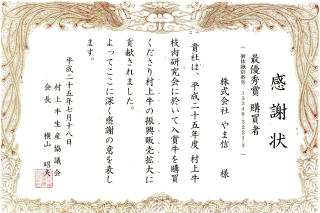 感謝状
最優秀賞 購買者
(個体識別番号 13348-3221-3)
株式会社 やま信 様
貴社は、平成二十五年度 村上牛
枝肉研究会に於いて入賞牛を購買
くださり村上牛の振興販売拡大に
貢献されました。
よってここに深く感謝の意を表し
ます。
平成二十五年七月十八日
村上牛生産協議会
会長 横山 昭夫